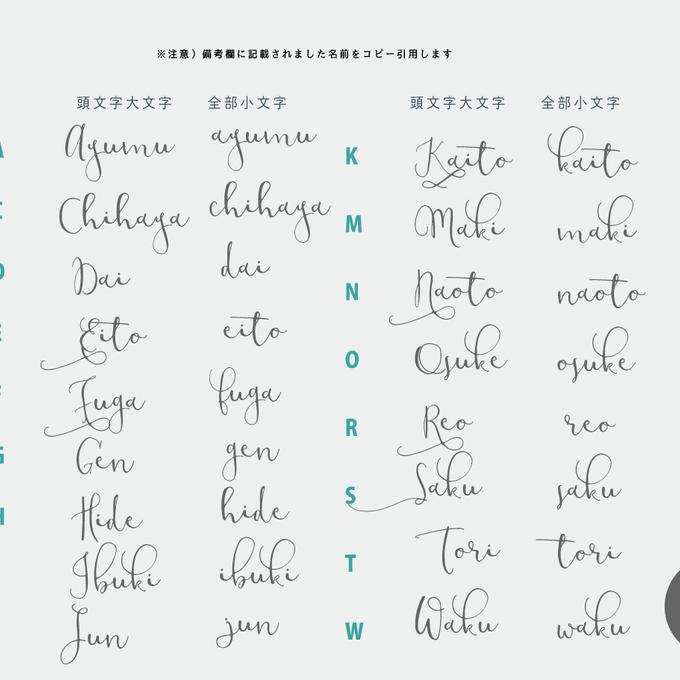 ※注意）備考欄に記載されました名前をコピー引用します
頭文字大文字 全部小文字
A Ayumu ayumu
Chihaya chihaya
D Dai dai
E Eito eito
F Fuga fuga
G Gen gen
H Hide hide
Ibuki ibuki
Jun jun
頭文字大文字 全部小文字
K Kaito kaito
M Maki maki
N Naoto naoto
O Osuke osuke
R Reo reo
S Saku saku
T Tori tori
W Waku waku